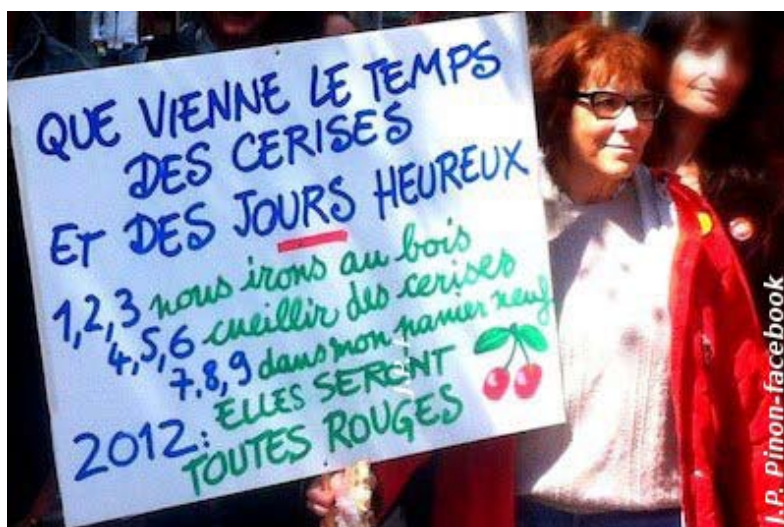 QUE VIENNE LE TEMPS
DES CERISES
ET DES JOURS HEUREUX
1,2,3 nous irons au bois
4,5,6 cueillir des cerises
7,8,9 dans mon panier neuf
2012: ELLES SERONT
TOUTES ROUGES
J.P. Pinon-facebook